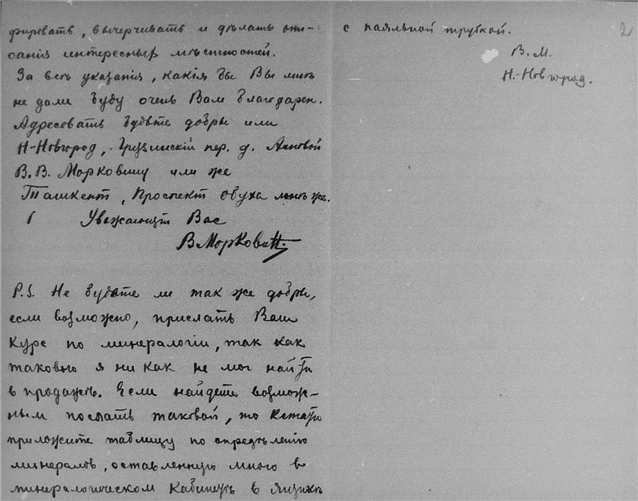 фировать, вычерчивать и дѣлать опи-
санія интересных мѣстностей.
За всѣ указанія, какія бы Вы мнѣ
не дали буду очень Вам благодарен.
Адресовать будьте добры или
Н-Новгород, Грузинскій пер. д.
В. В. Морковину или же
Ташкент, Проспект мнѣ же.
Уважающій Вас
В Морковин.
P.S. Не будете ли так же добры,
если возможно, прислать Ваш
курс по минералогіи, так как
таковаго я ни как не мог найти
в продажѣ. Если найдете возмож-
ным послать таковой, то кстати
приложите таблицу по опредѣленію
минералов, оставленную мною в
минералогическом кабинетѣ в ящикѣ
с паяльной трубкой.
В. М.
Н-Новгород.
2